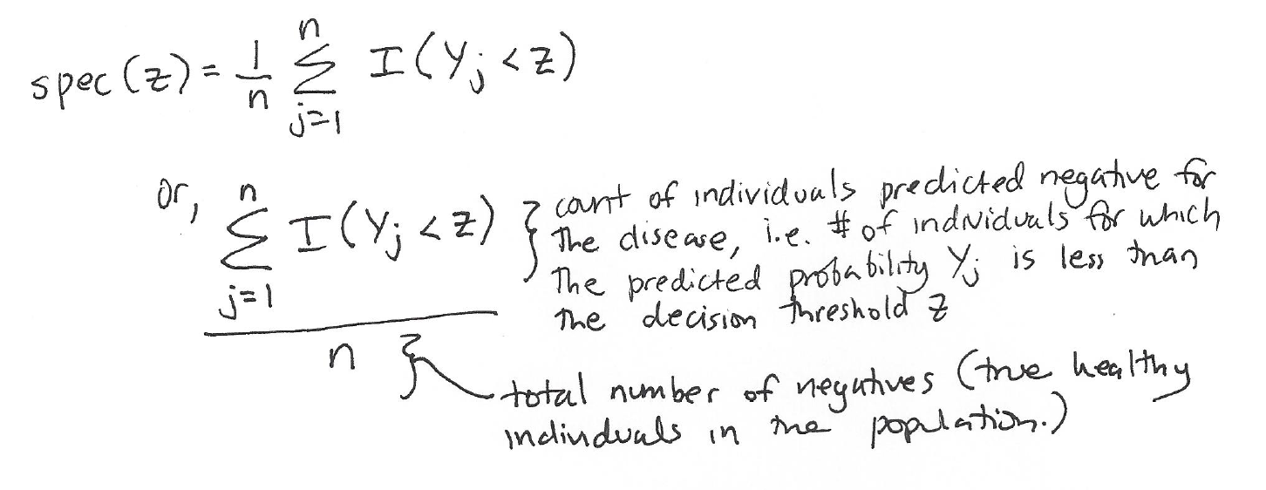 spec(z) = 1/n n∑j=1 I(Yj < z)
or, n∑j=1 I(Yj < z) } count of individuals predicted negative for
the disease, i.e. # of individuals for which
the predicted probability Yj is less than
the decision threshold z
n } total number of negatives (true healthy
individuals in the population.)